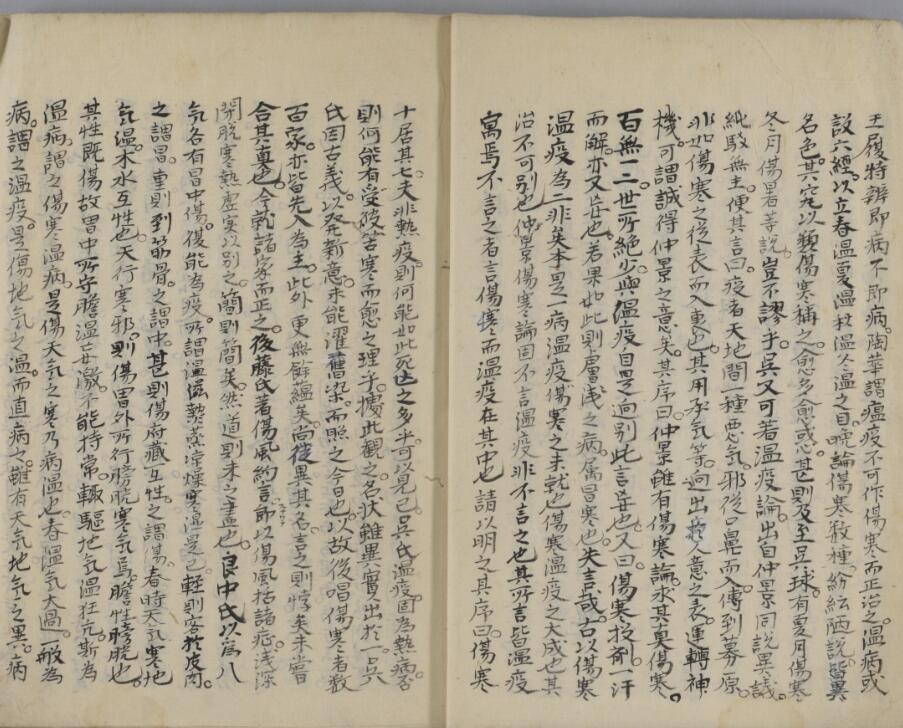 王履特辨即病不即病。陶華謂瘟疫不可作傷寒而正治之。温病或
設六經以立春温夏温秋温冬温之目。晚論傷寒数種紛紜陋説。皆異
名色。其究以類傷寒稱之。愈多愈惑。甚則及至呉球。有夏月傷寒
冬月傷暑等説。豈不謬乎。呉又可著温疫論。出自仲景同説異議。
純駁無主。便其言曰。疫者天地間一種悪气。邪從口鼻而入。傳到募原。
非如傷寒之從表而入裏也。其用承气等。迥出 人意之表。運轉神
機。可謂誠得仲景之意矣。其序曰。仲景雖有傷寒論。求其真傷寒。
百無一二。世所絶少。與温疫自是迥別。此言是也。又曰。傷寒投剤。一汗
而解。亦又是也。若果如此。則層淺之病。属冒寒也。失言哉。古以傷寒
温疫為二非矣。本是一病。温疫傷寒之未就也。傷寒温疫之大成也。其
治不可別也。仲景傷寒論固不言温疫。非不言之也。其所言皆温疫
寓焉。不言之者言傷寒而温疫在其中也。請以明之。其序曰。傷寒
十居其七。夫非熱疫。則何能如此死亡之多乎。可以見已。呉氏温疫。固為熱病。否
則何能有受破苦寒而愈之理乎。據此觀之。名状雖異。實出於一。呉
氏因古義。以発新意。未能濯舊染。而照之今日也。以故後唱傷寒者数
百家。亦皆先入為主。此外更無餘蘊矣。尚從異其名。言之則悖矣。未嘗
合其真也。今就諸家而正之。後藤氏著傷風約言。即以傷風括諸症。淺深
開脱寒熱虚実以別之。簡則簡矣。然道則未之盡也。良中氏以為八
气各有冒中傷。復能為疫。所謂温 熱蒸涼燥寒湿是已。軽則客於皮肉。
之謂冒。重則到筋骨。之謂中。甚則傷府藏互性。之謂傷。春時天气寒。地
气温。木水互性也。天行寒邪。則傷胃外所行膀胱寒气焉。膽性膀胱也。
其性既傷故胃中所守膽温 激。不能持常。輙驅地气温狂亢。斯為
温病。謂之傷寒温病。是傷天气之寒乃病温也。春温气大過。一般為
病。謂之温疫。是傷地气之温。而直病之。雖有天气地气之異。病